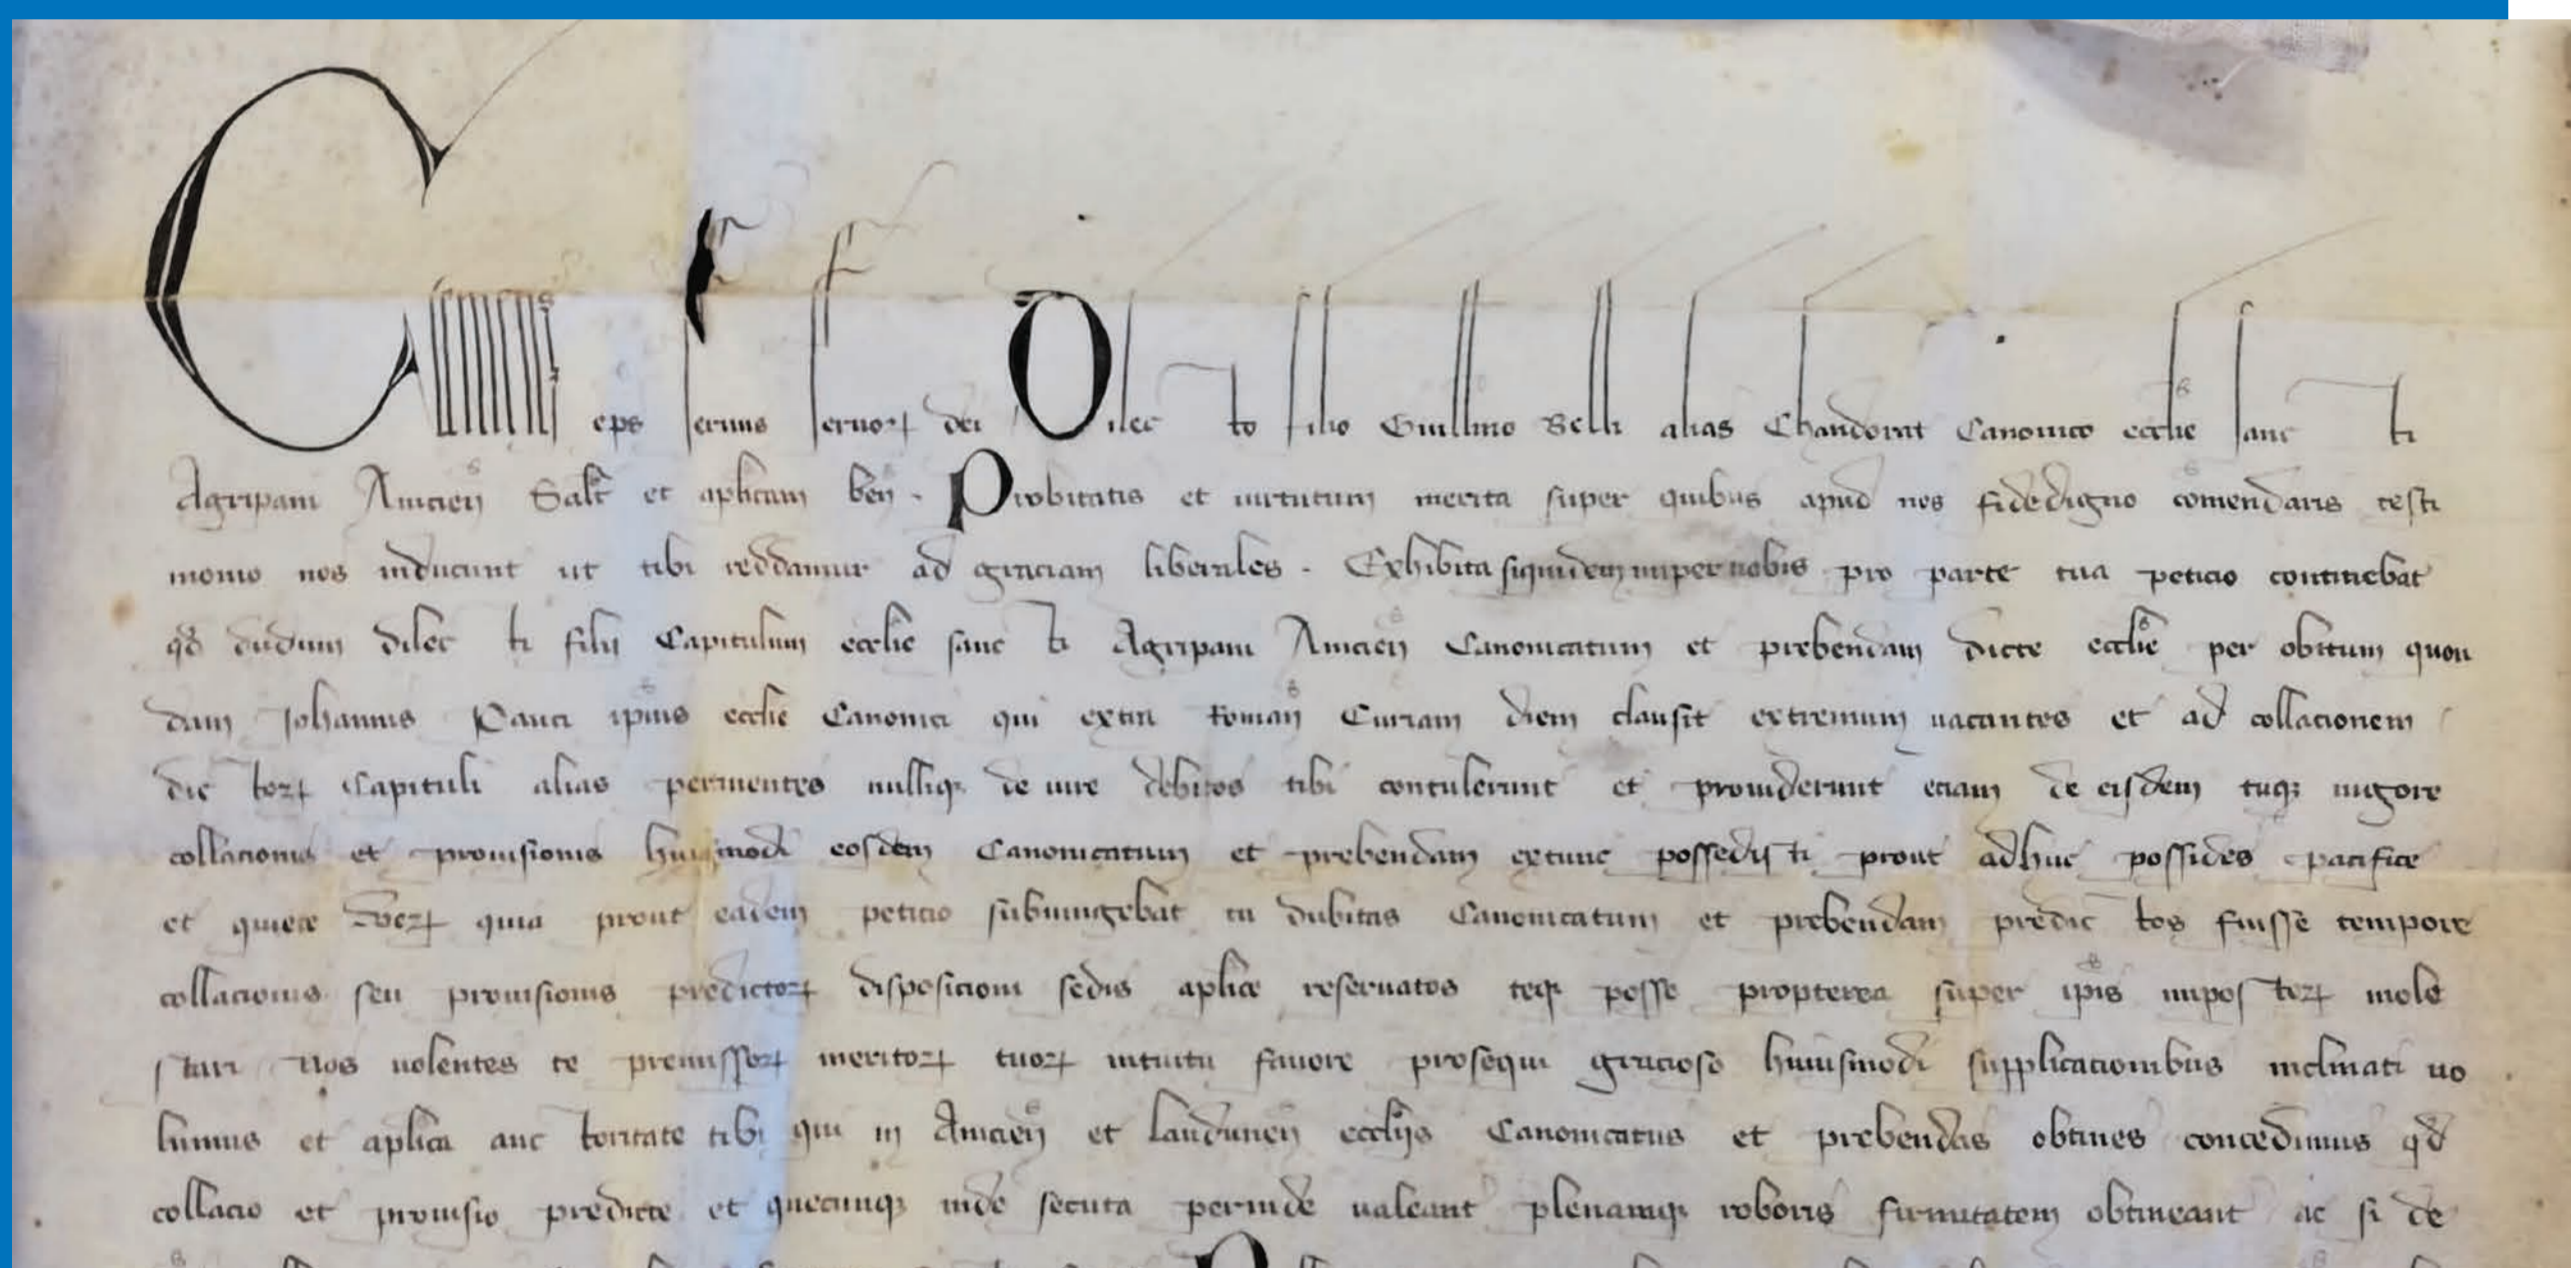 Clemens eps seruus seruoꝝ dei Dilecto filio Guillmo Belli alias Chandorat Canonico ecclie sancti
Agripani Anicien Saltm et aplicam ben. Probitatis et uirtutum merita super quibus apud nos fidedigno comendaris testi
monio nos inducunt ut tibi reddamur ad graciam liberales. Exhibita siquidem nuper nobis pro parte tua peticio continebat
qd dudum dilecti filii Capitulum ecclie sancti Agripani Anicien Canonicatum et prebendam dicte ecclie per obitum quon
dam Johannis Pauci ipius ecclie Canonici qui extra Roman Curiam diem clausit extremum uacantes et ad collacionem
dictoꝝ Capituli alias pertinentes nulliqꝫ de iure debitos tibi contulerunt et prouiderunt eciam de eisdem tuqꝫ uigore
collacionis et prouisionis huiusmodi eosdem Canonicatum et prebendam extunc possedisti prout adhuc possides pacifice
et quiete Veꝝ quia prout eadem peticio subiungebat tu dubitas Canonicatum et prebendam predictos fuisse tempore
collacionis seu prouisionis predictoꝝ disposicioni sedis aplice reseruatos teqꝫ posse propterea super ipis imposteꝝ mole
stari Nos uolentes te premissoꝝ meritoꝝ tuoꝝ intuitu fauore prosequi gracioso huiusmodi supplicacionibus inclinati uo
lumus et aplica auctoritate tibi qui in Anicien et Laudunen ecclijs Canonicatus et prebendas obtines concedimus qd
collacio et prouisio predicte et quecunqꝫ inde secuta perinde ualeant plenamqꝫ roboris firmitatem obtineant ac si de